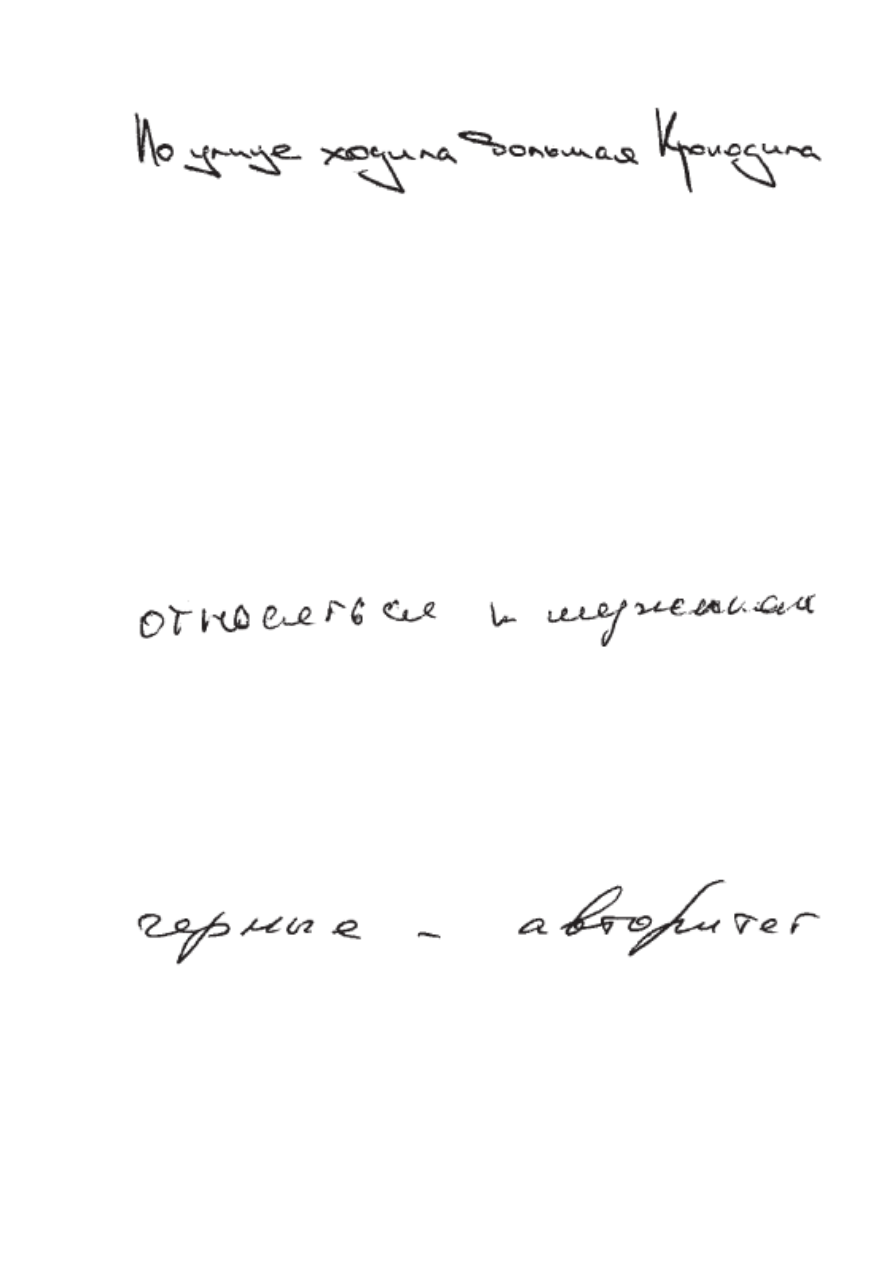 По улице ходила Большая Крокодила
относиться к мужчинам
черные - авторитет